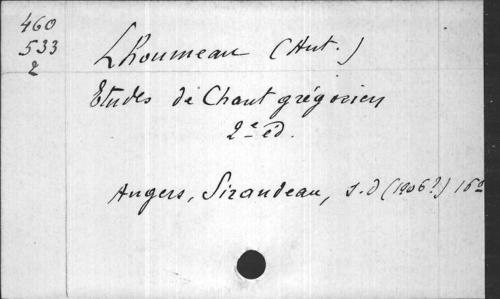 460
533
2
Lhoumeau (Ant.)
Etudes de Chant grégorien
2e éd.
Angers, Sirandeau, s.d (1906?) 16o